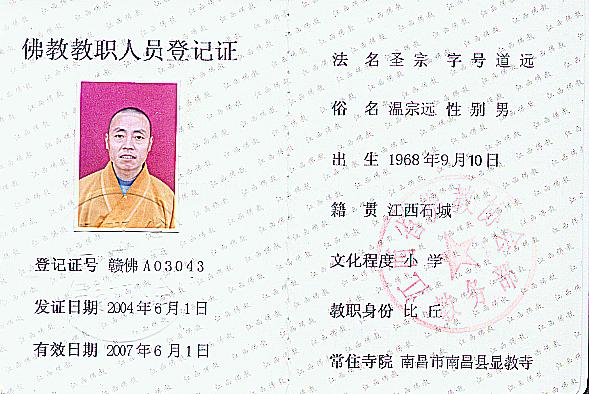 佛教教职人员登记证
登记证号 赣佛A03043
发证日期 2004年6月1日
有效日期 2007年6月1日
法名 圣宗 字号 道远
俗名 温宗远 性别 男
出生 1968年9月10日
籍贯 江西石城
文化程度 小学
教职身份 比丘
常住寺院 南昌市南昌县显教寺